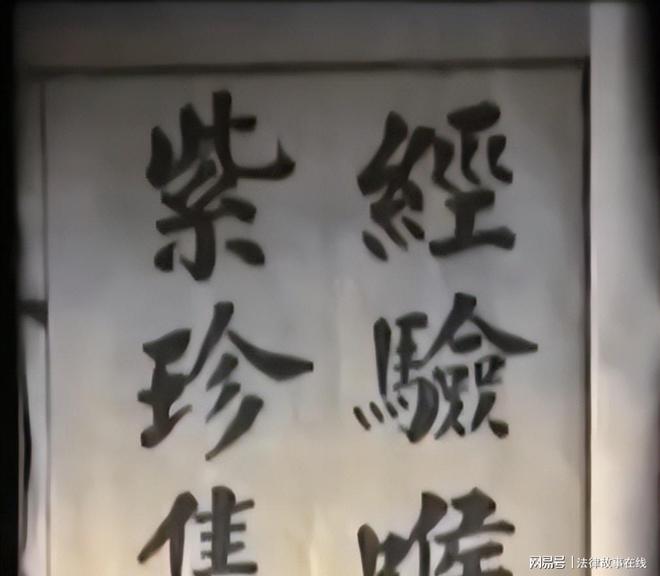 經驗喉
紫珍集
网易号 | 法律故事在线